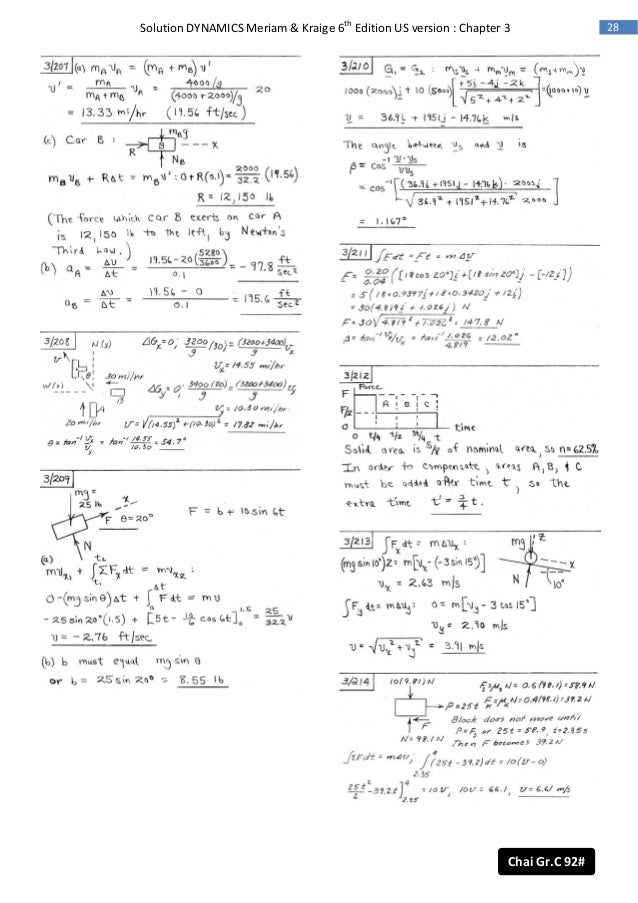 Solution DYNAMICS Meriam & Kraige 6th Edition US version : Chapter 3
28
3/207 (a) mA vA = (mA + mB) v'
v' = mA / (mA + mB) vA = 4000/g / (4000 + 2000)/g 20
= 13.33 mi/hr (19.56 ft/sec)
(c) Car B : mBg
R B --- x
NB
mB vB + RΔt = mB v' : 0 + R(0.1) = 2000/32.2 (19.56)
R = 12,150 lb
(The force which car B exerts on car A
is 12,150 lb to the left, by Newton's
Third Law.)
(b) aA = Δv/Δt = 19.56 - 20(5280/3600) / 0.1 = -97.8 ft/sec²
aB = Δv/Δt = 19.56 - 0 / 0.1 = 195.6 ft/sec²
3/208 N(y) ΔGx = 0; 3200/g (30) = (3200+3400)/g vx
v θ 30 mi/hr vx = 14.55 mi/hr
W(x) B ΔGy = 0; 3400(20)/g = (3200+3400)/g vy
A vy = 10.30 mi/hr
20 mi/hr v = √(14.55)² + (10.30)² = 17.82 mi/hr
θ = tan⁻¹ vx/vy = tan⁻¹ 14.55/10.30 = 54.7°
3/209
mg =
25 lb x
F θ = 20° F = b + 10 sin 6t
N
(a)
mvx1 + ∫t1 t2 ΣFx dt = mvx2 :
0 - (mg sin θ) Δt + ∫0 Δt F dt = mv
-25 sin 20°(1.5) + [5t - 10/6 cos 6t]0 1.5 = 25/32.2 v
v = -2.76 ft/sec
(b) b must equal mg sin θ
or b = 25 sin 20° = 8.55 lb
3/210 G1 = G2 : ms vs + mm vm = (ms + mm) v
1000 (2000) j + 10 (5000) [+5i - 4j - 2k / √5² + 4² + 2²] = (1000+10) v
v = 36.9i + 1951j - 14.76k m/s
The angle between vs and v is
β = cos⁻¹ v · vs / v vs
= cos⁻¹ [(36.9i + 1951j - 14.76k) · 2000j / √36.9² + 1951² + 14.76² 2000]
= 1.167°
3/211 ∫F dt = Ft = m Δv
F = 0.20/0.04 ([18 cos 20°]i + [18 sin 20°]j - [-12i])
= 5 (18×0.9397i + 18×0.3420j + 12i)
= 30(4.819i + 1.026j) N
F = 30√4.819² + 1.026² = 147.8 N
β = tan⁻¹ vy/vx = tan⁻¹ 1.026/4.819 = 12.02°
3/212
Force
F
A B C
F/2
0 time
0 t/4 t/2 3t/4 t
Solid area is 5/8 of nominal area, so n = 62.5%
In order to compensate, areas A, B, & C
must be added after time t, so the
extra time t' = 3/4 t.
3/213 ∫Fx dt = mΔvx : mg z
(mg sin 10°)2 = m[vx - (-3 sin 15°)] x
vx = 2.63 m/s N 10°
∫Fy dt = mΔvy : 0 = m[vy - 3 cos 15°]
vy = 2.90 m/s
v = √vx² + vy² = 3.91 m/s
3/214 10(9.81)N Fs = μs N = 0.6(98.1) = 58.9 N
P = 25t Fk = μk N = 0.4(98.1) = 39.2 N
F Block does not move until
N = 98.1 N P = Fs or 25t = 58.9, t = 2.35 s
Then F becomes 39.2 N
∫ΣF dt = mΔv; ∫2.35 4 (25t - 39.2) dt = 10(v - 0)
25t²/2 - 39.2t]2.35 4 = 10v, 10v = 66.1, v = 6.61 m/s
Chai Gr.C 92#